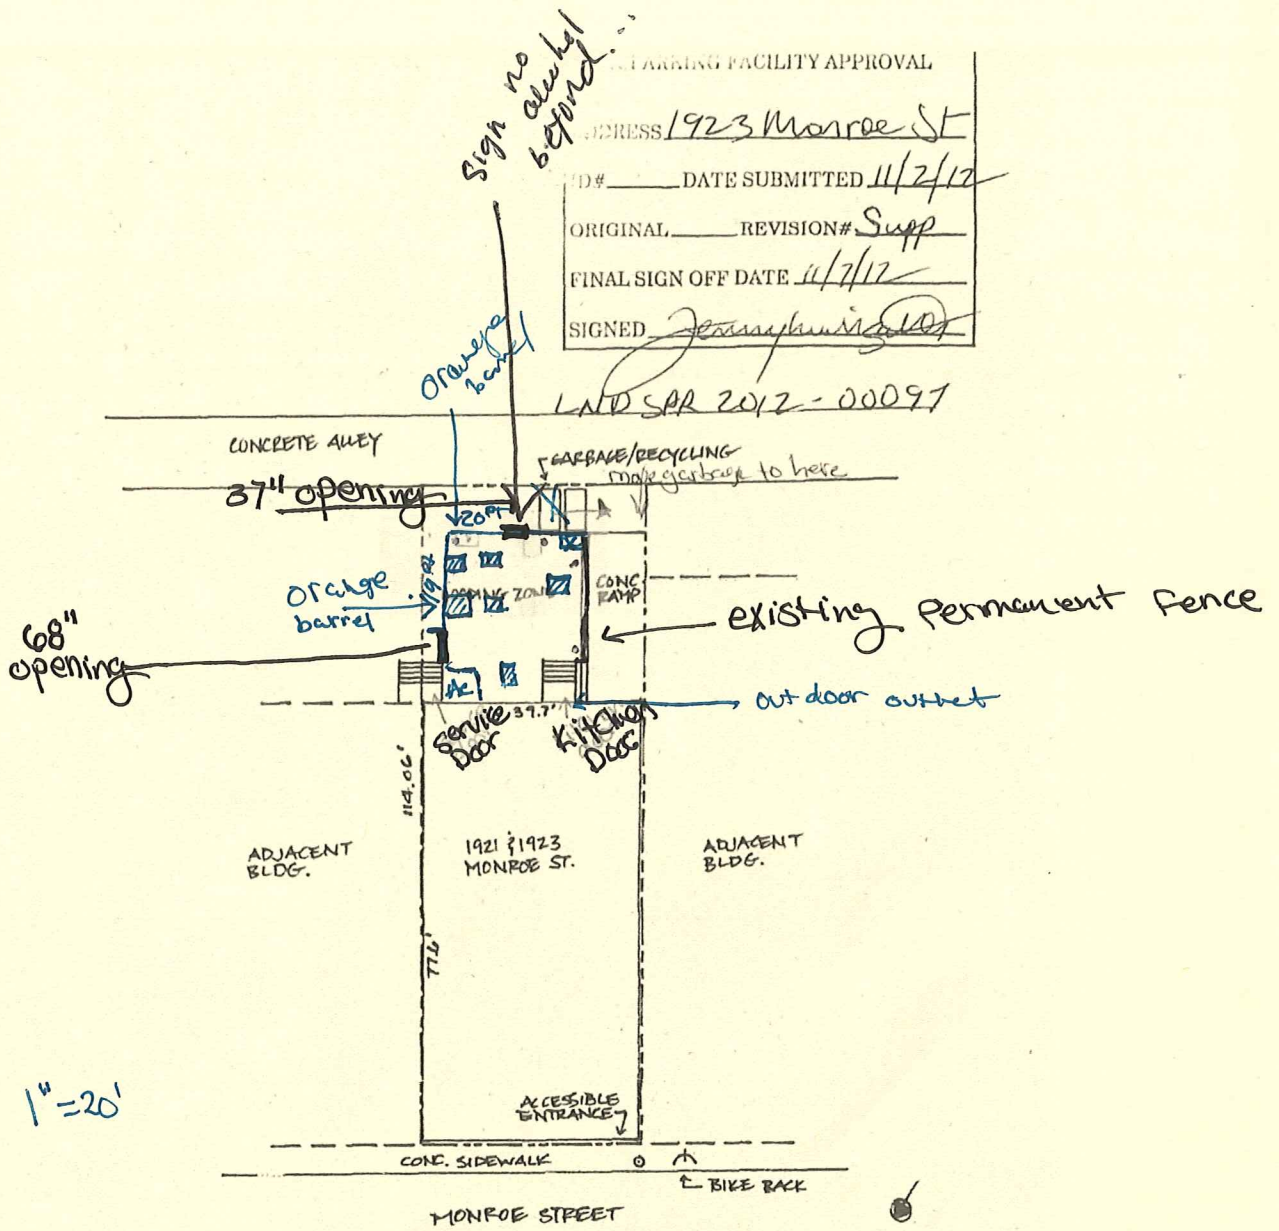 Sign no
alcohol
beyond...
PARKING FACILITY APPROVAL
ADDRESS 1923 Monroe St
ID# DATE SUBMITTED 11/2/12
ORIGINAL REVISION# Supp
FINAL SIGN OFF DATE 11/7/12
SIGNED
LNDSPR 2012-00097
orange
barrel
CONCRETE ALLEY
GARBAGE/RECYCLING
move garbage to here
37" opening
20 Ft
19 Ft
Orange
barrel
LOADING ZONE
CONC.
RAMP
existing permanent fence
68"
opening
AC
outdoor outlet
39.7'
Service
Door
Kitchen
Door
114.06'
ADJACENT
BLDG.
1921 & 1923
MONROE ST.
ADJACENT
BLDG.
77.6'
1"=20'
ACCESSIBLE
ENTRANCE
CONC. SIDEWALK
BIKE RACK
MONROE STREET